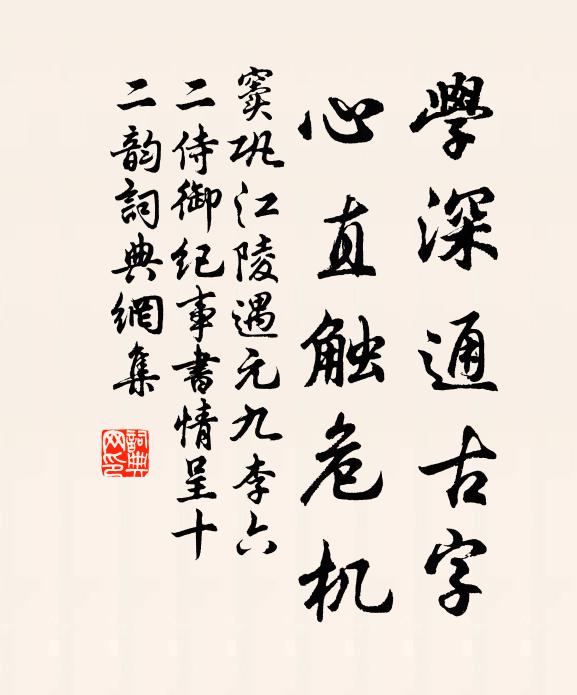 學深通古字
心直触危机
窦巩江陵遇元九李六
二侍御纪事書情呈十
二韵詞典網集
詞典
网印